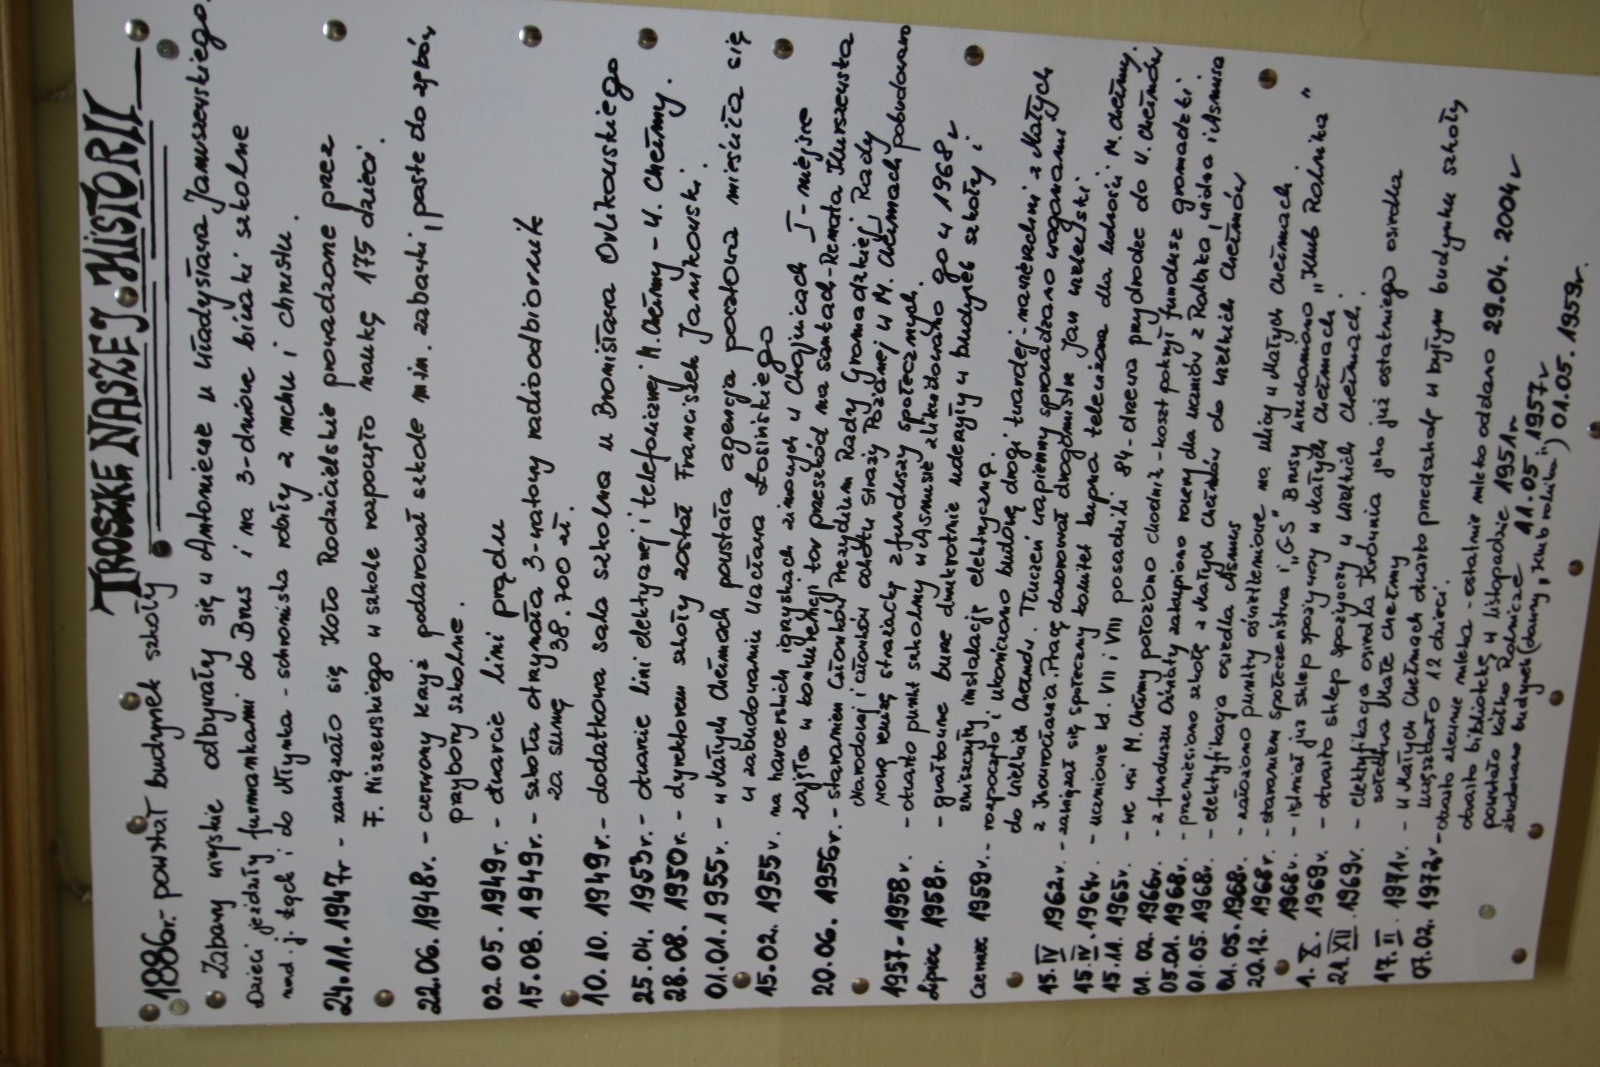 TROSZKĘ NASZEJ HISTORII
1886r. - powstał budynek szkoły
Zabawy wiejskie odbywały się u Antoniewe u Władysława Januszewskiego.
Dzieci jeździły furmankami do Brus i na 3-dniowe biwaki szkolne
nad j. Łąck i do Młynka - schroniska robiły z mchu i chrustu.
24.11.1947r - zawiązało się Koło Rodzicielskie prowadzone przez
F. Niszewskiego w szkole rozpoczęło naukę 175 dzieci.
22.06.1948r. - czerwony krzyż podarował szkole min. zabawki, pastę do zębów
przybory szkolne.
02.05.1949r. - otwarcie linii prądu
15.08.1949r. - szkoła otrzymała 3-watowy radioodbiornik
za sumę 38.700 zł.
10.10.1949r. - dodatkowa sala szkolna u Bronisława Orlikowskiego
25.04.1953r. - otwarcie linii elektrycznej i telefonicznej M. Chełmy - W. Chełmy.
28.08.1950r. - dyrektorem szkoły został Franciszek Janikowski.
01.01.1955r. - w Małych Chełmach powstała agencja pocztowa mieściła się
w zabudowaniu Wacława Łosińskiego
15.02.1955r. na harcerskich igrzyskach zimowych w Chojnicach I - miejsce
zajęła w konkurencji tor przeszkód na sankach - Renata Kurszewska
20.06.1956r. - staraniem członków Prezydium Rady Gromadzkiej Rady
Narodowej i członków oddziału straży Pożarnej w M. Chełmach pobudowano
nową remizę strażacką z funduszy społecznych.
1957-1958r. - otwarto punkt szkolny w Asmusie zlikwidowano go w 1968r
Lipiec 1958r. - gwałtowne burze dwukrotnie uderzyły w budynek szkoły i
zniszczyły instalację elektryczną.
Czerwiec 1959r. - rozpoczęto i ukończono budowę drogi twardej - nawierzchni z Małych
do Wielkich Chełmów. Tłuczeń wapienny sprowadzano wagonami
z Inowrocławia. Pracę dozorował drogomistrz Jan Wielewski
15.IV 1962r. - zawiązał się społeczny komitet kupna telewizora dla ludności M. Chełmy.
15.IV.1964r. - uczniowie kl. VII i VIII posadzili 84 - drzewa przy drodze do W. Chełmów
15.11.1965r. - we wsi M. Chełmy położono chodnik - koszt pokrył fundusz gromadzki
01.02.1966r. - z funduszu Oświaty zakupiono rowery dla uczniów z Rolbika, Widna i Asmusa
05.01.1968r. - przeniesiono szkołę z Małych Chełmów do Wielkich Chełmów
01.05.1968r. - elektryfikacja osiedla Asmus
01.05.1968r. - założono punkty oświetleniowe na ulicy w Małych Chełmach
20.12.1968r. - staraniem społeczeństwa i „GS” Brusy wybudowano „Klub Rolnika”
1968r. - istniał już sklep spożywczy w Małych Chełmach.
1.X.1969r. - otwarto sklep spożywczy w Wielkich Chełmach.
21.XII.1969r. - elektryfikacja osiedla Krównia jako już ostatniego osiedla
sołectwa Małe Chełmy
17.II.1971r. - w Małych Chełmach otwarto przedszkole w byłym budynku szkoły
uczęszczało 12 dzieci.
07.02.1972r - otwarto zlewnię mleka - ostatnie mleko oddano 29.04.2004r
otwarto bibliotekę w Listopadzie 1951r
powstało kółko Rolnicze 11.05.1957r
zbudowano budynek (dawny „Klub rolnika”) 01.05.1959r.